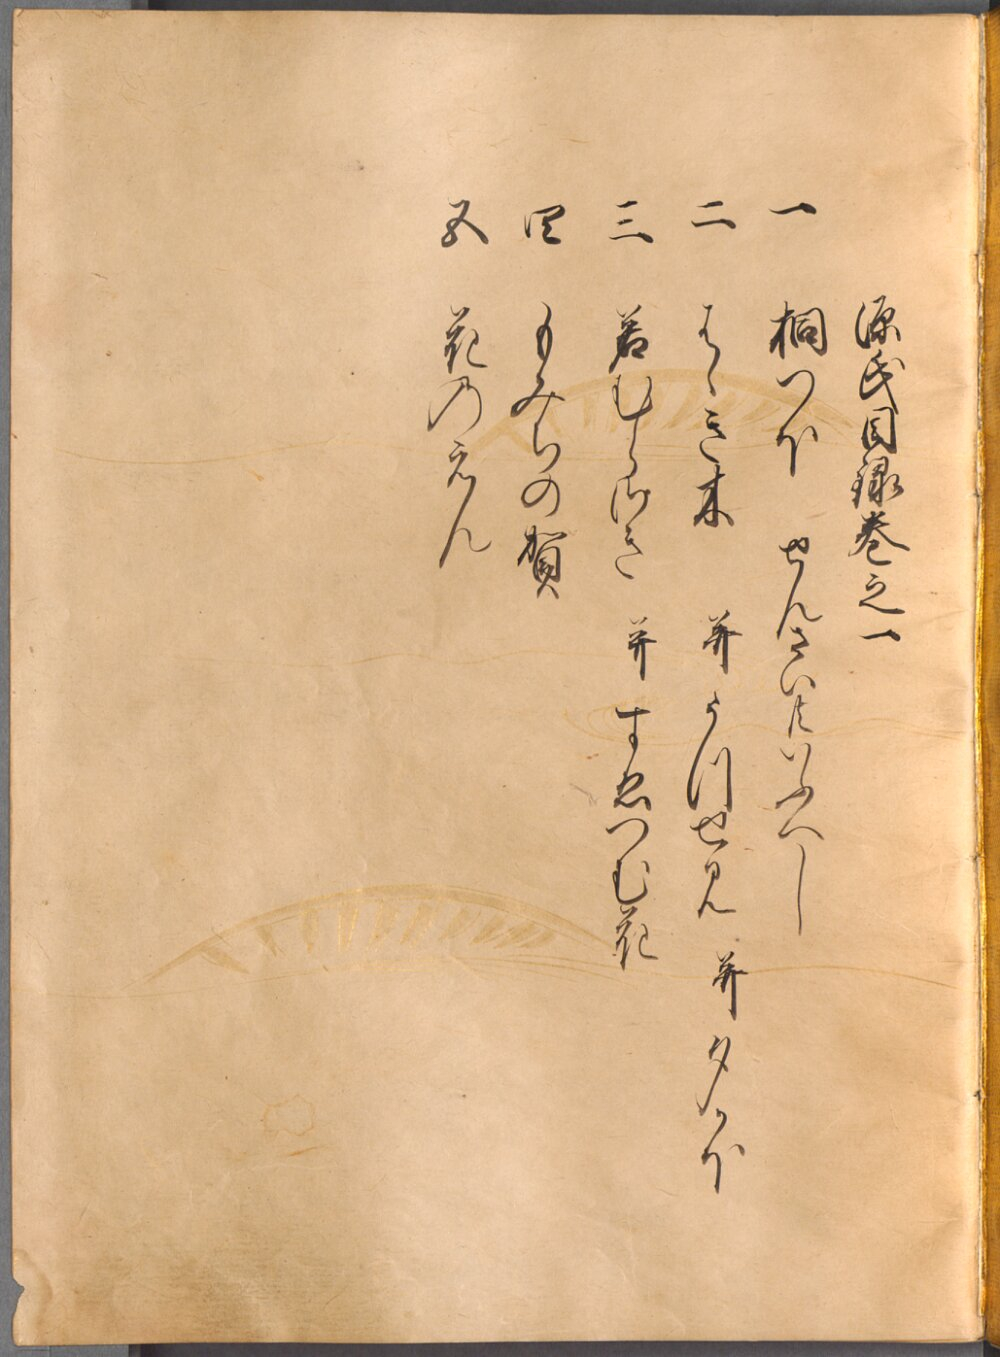 源氏目録巻之一
一 桐つほ せんさい共いふへし
二 はゝき木 并うつせ見 并夕かほ
三 若むらさき 并すゑつむ花
四 もみちの賀
五 花乃えん